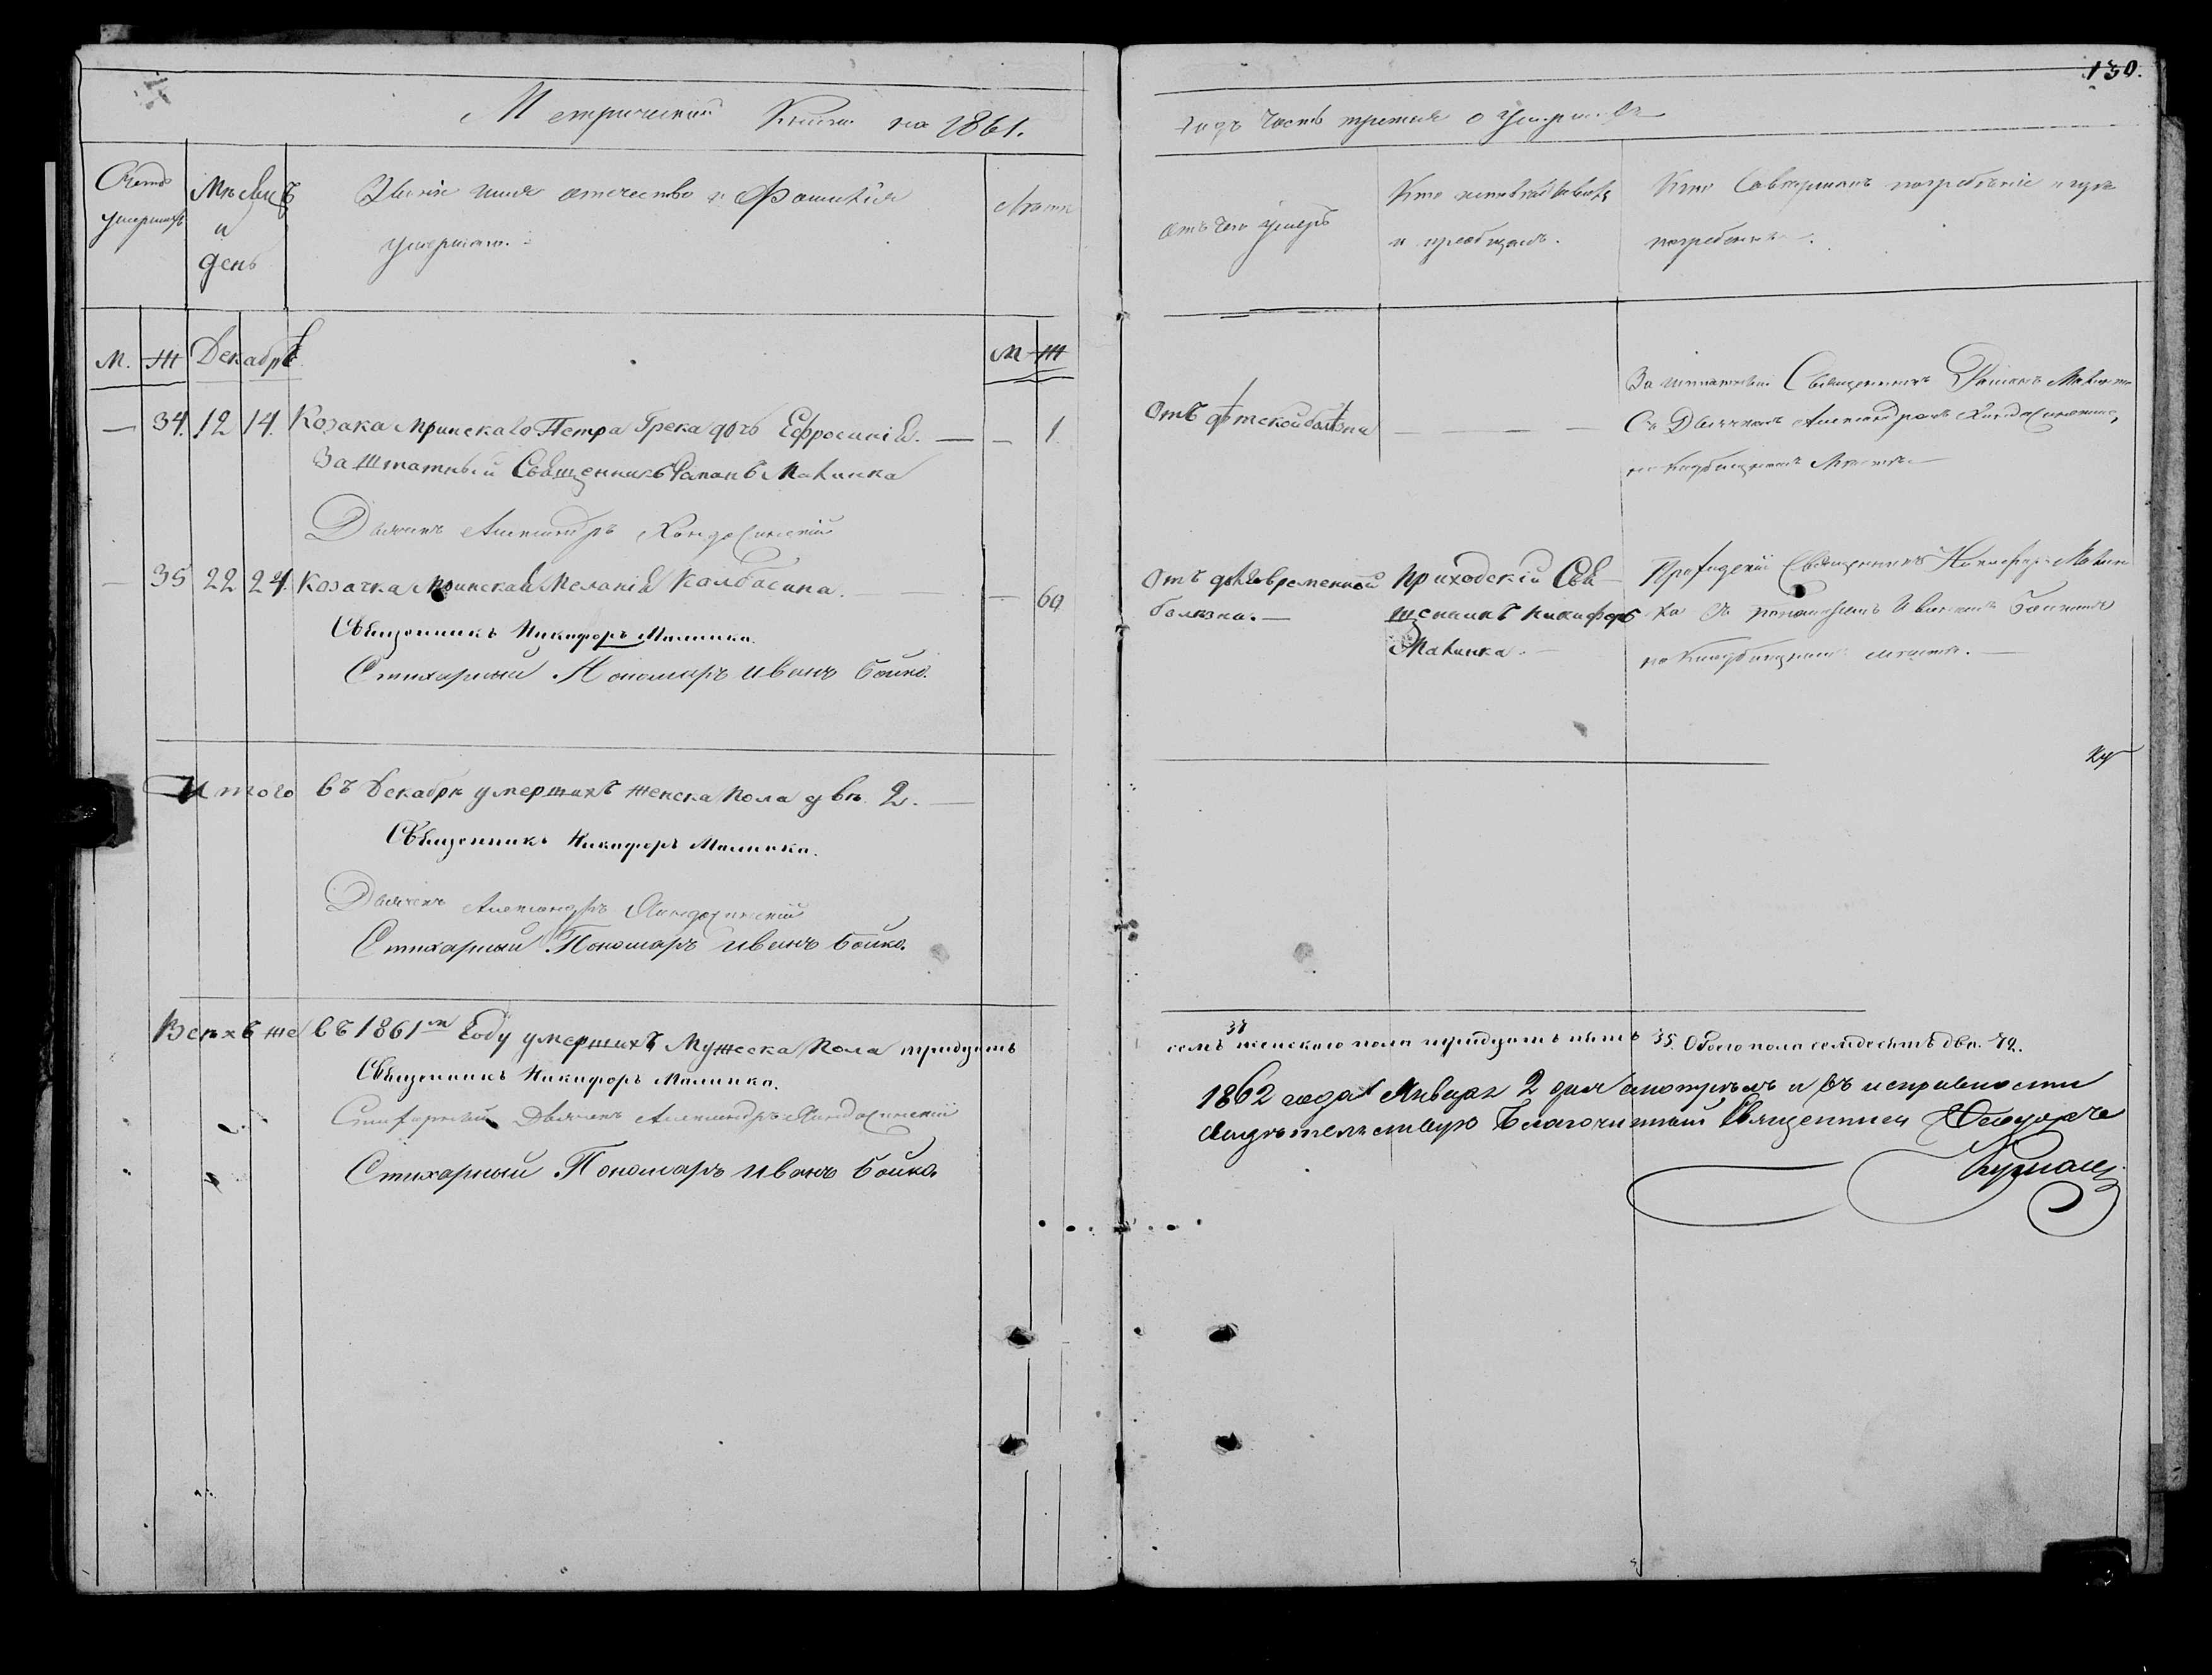 130.
Метрической Книги на 1861.
годъ Часть третия о умершихъ
Счетъ умершихъ
Мѣсяцъ и день
Званіе имя отечество и Фамилія умершаго.
Лѣта
отъ чего умеръ
Кто исповѣдывалъ и преобщалъ.
Кто Совершалъ погребеніе и гдѣ погребены.
М. Ж Декабрѣ М Ж
— 34. 12 14. Козака Мринскаго Петра Грека дочь Ефросинія. — — 1
Заштатный Священникъ Романъ Малинка
Дьячекъ Александръ
отъ дѣтской болѣзни
— — —
Заштатный Священникъ Романъ Малинка
Съ Дьячкомъ Александромъ
на кладбищномъ Мѣстѣ —
— 35 22 24. Козачка Мринская Меланія Колбасина. — — 60
Священникъ Никифоръ Малинка.
Стихарный Пономаръ Иванъ Бойко.
Отъ долговременной
болезни. —
Приходскій Свя
щенникъ Никифоръ
Малинка. —
Приходскій Священникъ Никифоръ Малин
ка съ пономаремъ Иваномъ Бойкомъ
на Кладбищномъ мѣстѣ. —
Итого въ Декабрѣ умершихъ женска пола двѣ. 2. —
Священникъ Никифоръ Малинка.
Дьячекъ Александръ
Стихарный Пономаръ Иванъ Бойко.
Всѣхъ же въ 1861м Году умершихъ Мужеска Пола тридцать
37
семъ женскаго пола тридцать пять 35. Обоего пола семдесятъ два. 72.
Священникъ Никифоръ Малинка.
Стихарный Дьячекъ Александръ
Стихарный Пономаръ Иванъ Бойко.
1862 года Января 2 дня смотрѣлъ и въ исправности
свидѣтельствую Благочинный Священникъ